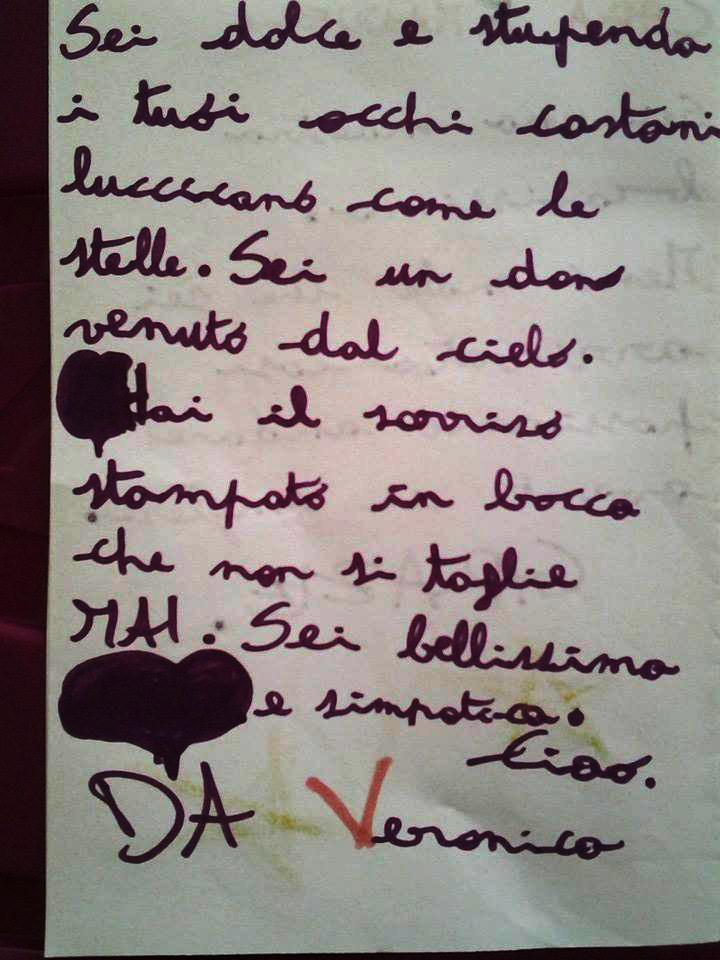 Sei dolce e stupenda
i tuoi occhi castani
luccicano come le
stelle. Sei un dono
venuto dal cielo.
Hai il sorriso
stampato in bocca
che non si toglie
MAI. Sei bellissima
e simpatica.
Ciao.
DA Veronica